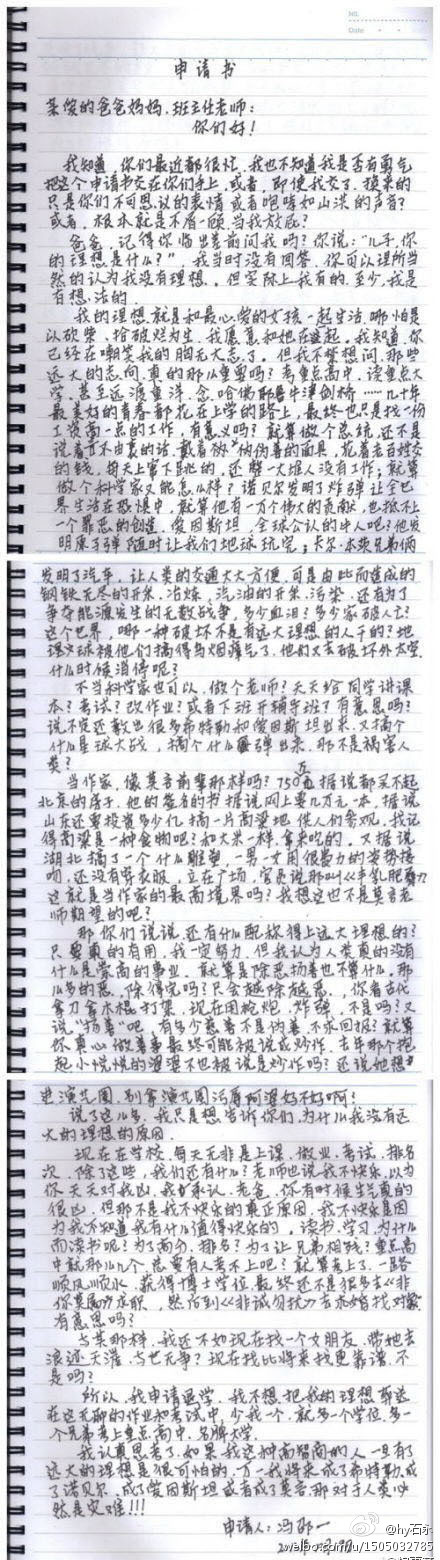 申请书
亲爱的爸爸妈妈、班主任老师：
你们好！
我知道，你们最近都很忙，我也不知道我是否有勇气
把这个申请书交在你们手上，或者，即使我交了，换来的
只是你们不可思议的表情或者咆哮如山洪的声音？
或者，根本就是不屑一顾，当我放屁？
爸爸，记得你临出差前问我吗？你说："儿子，你
的理想是什么？"，我当时没有回答，你可以理所当
然的认为我没有理想。但实际上我有的，至少，我是
有想法的。
我的理想就是和最心爱的女孩一起生活，哪怕是
以砍柴、拾破烂为生，我愿意和她在一起。我知道，你
已经在嘲笑我的胸无大志了。但我不禁想问，那些
远大的志向，真的那么重要吗？考重点高中，读重点大
学，甚至远渡重洋，念哈佛耶鲁牛津剑桥……几十年
最美好的青春都花在上学的路上，最终也只是找一份
工资高一点的工作，有意义吗？就算做个总统，还不是
说着言不由衷的话，戴着伪善的面具，花着老百姓交
的钱，每天上窜下跳的，还整一大堆人没有工作；就算
做个科学家又能怎么样？诺贝尔发明了炸弹让全世
界生活在恐惧中，就算他有一万个伟大的贡献，也抵不上
一个罪恶的创造，爱因斯坦，全球公认的牛人吧？他发
明原子弹随时让我们地球玩完；卡尔·本茨兄弟俩
发明了汽车，让人类的交通大大方便，可是由此而造成的
钢铁无尽的开采、冶炼，汽油的开采、污染，还有为了
争夺能源发生的无数战争，多少血泪？多少家破人亡？
这个世界，哪一种破坏不是有远大理想的人干的？地
球被他们搞得乌烟瘴气了，他们又去破坏外太空，
什么时候消停呢？
不当科学家也可以，做个老师？天天给同学讲课
本？考试？改作业？或者下班开辅导班？有意思吗？
说不定还教出很多希特勒和爱因斯坦出来，又搞个
什么星球大战，搞个什么弹出来，那不是祸害人
类？
当作家，像莫言前辈那样吗？750万据说都买不起
北京的房子，他的签名的书据说网上要几万元一本，据说
山东还要投资多少亿搞一片高粱地，供人们参观，我记
得高粱是一种食物吧？和大米一样，拿来吃的。又据说
湖北搞了一个什么雕塑，一男一女用很费力的姿势接
吻，还没有穿衣服，立在广场，官员说那叫《丰乳肥臀》，
这就是当作家的最高境界吗？我想这也不是莫言老
师期望的吧？
那你们说说，还有什么配称得上远大理想的？
只要真的有用，我一定努力，但我认为人类真的没有
什么是崇高的事业，就算是除恶扬善也不算什么，那
么多的恶，除得完吗？只会越除越恶，你看古代
拿刀拿木棍打架，现在用枪炮、炸弹，不是吗？又
说"扬善"吧，有多少慈善不是伪善，不求回报？就算
你真心做善事最终可能被说成炒作，去年那个抱
起小悦悦的婆婆不也被说是炒作吗？还说她想
进演艺圈，别拿演艺圈污辱阿婆好不好啊！
说了这么多，我只是想告诉你们，为什么我没有远
大的理想的原因。
现在在学校，每天无非是上课、做业、考试、排名
次，除了这些，我们还有什么？老师也说我不快乐，以为
你天天对我凶，我承认，老爸，你有时候生气真的
很凶，但那不是我不快乐的真正原因，我不快乐是因
为我不知道我有什么值得快乐的。读书、学习，为什么
而读书呢？为了高分，排名？为了让兄弟相残？重点高
中就那么几个，总要有人考不上吧？就算考上了，一路
顺风顺水，获得博士学位，最终还不是很多去《非
你莫属》求职，然后到《非诚勿扰》去求婚找对象，
有意思吗？
与其那样，我还不如现在找一个女朋友，带她去
浪迹天涯，与世无争？现在找比将来找更靠谱，不
是吗？
所以，我申请退学，我不想把我的理想葬送
在这无聊的作业和考试中，少我一个，就多一个学位，多
一个兄弟考上重点高中、名牌大学。
我认真思考了，如果我这种高智商的人一旦有了
远大的理想是很可怕的，万一我将来成了希特勒，成
了诺贝尔，成了爱因斯坦或者成了莫言，那对于人类必
然是灾难！！！
申请人：冯邵一
@hy石永
weibo.com/u/1505032785